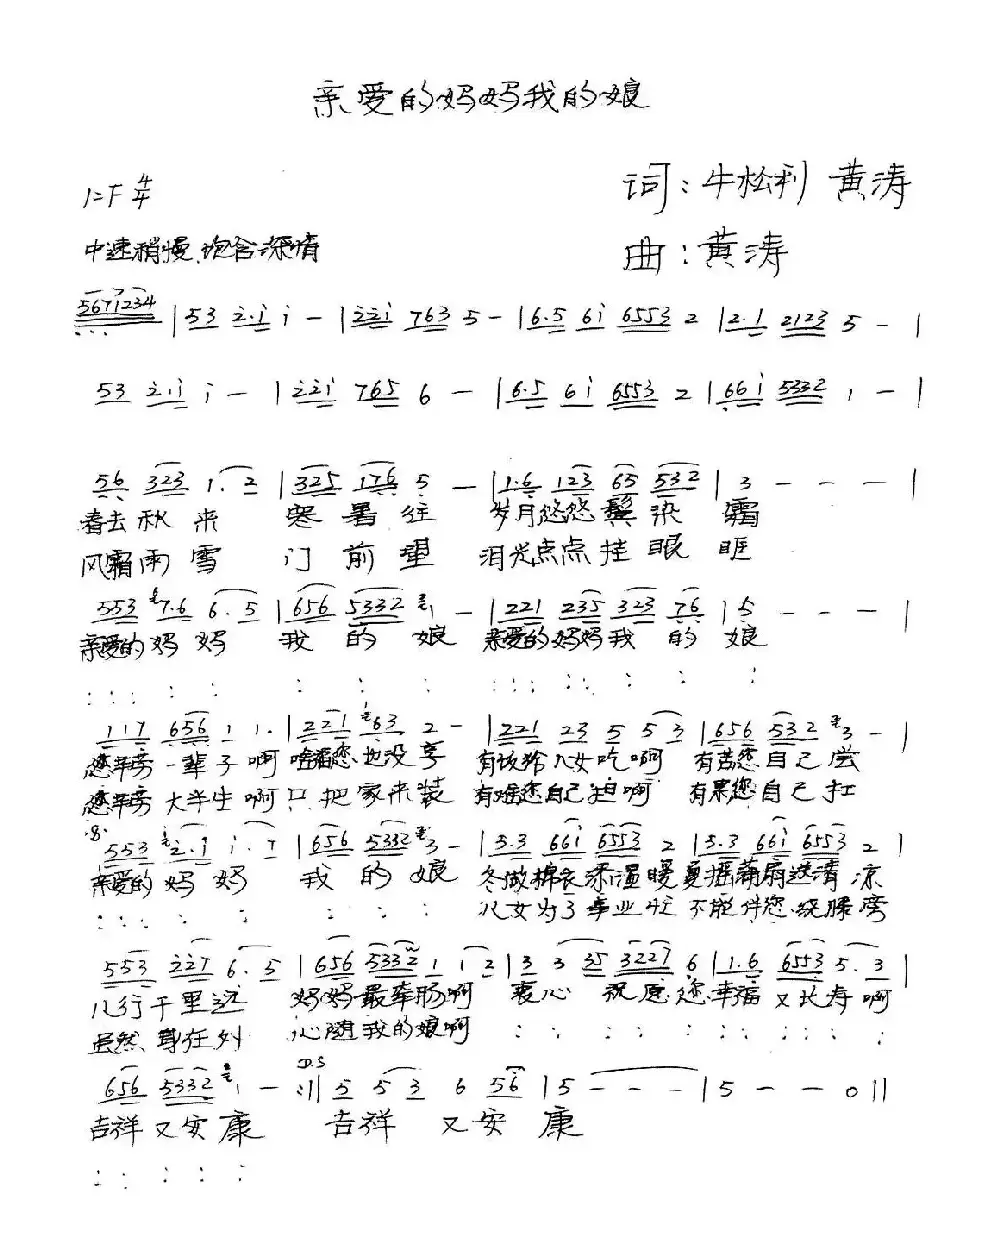 亲爱的妈妈我的娘
1=F 4/4
词：牛松利 黄涛
中速稍慢、饱含深情
曲：黄涛
5671234 | 53 2.1 1 - | 221 763 5 - | 6.5 61 6553 2 | 2.1 2123 5 - |
53 2.1 1 - | 221 765 6 - | 6.5 61 6553 2 | 661 5332 1 - |
56 323 1.2 | 325 176 5 - | 1.6 123 65 532 | 3 - - - |
春去秋来 寒暑往 岁月悠悠鬓染霜
风霜雨雪 门前望 泪光点点挂眼眶
553 7.6 6.5 | 656 5332 1 - | 221 235 323 76 | 5 - - - |
亲爱的妈妈 我的娘 亲爱的妈妈我的娘
: : : : : : : : : : : : : : : :
117 656 1 1. | 221 63 2 - | 221 23 5 53 | 656 532 3 - |
您辛劳一辈子啊 啥福您也没享 有该给儿女吃啊 有苦您自己尝
您辛劳大半生啊 只把家来装 有难您自己担啊 有累您自己扛
553 2.1 1.7 | 656 5332 3 - | 5.3 661 6553 2 | 5.3 661 6553 2 |
亲爱的妈妈 我的娘 冬做棉衣添温暖 夏摇蒲扇送清凉
: : : : : : : : 儿女为了事业忙 不能伴您绕膝旁
553 227 6.5 | 656 5332 1 12 | 3 3 35 3227 6 | 1.6 6553 5.3 |
儿行千里远 妈妈最牵肠啊 衷心祝愿您 幸福又长寿啊
虽然身在外 心随我的娘啊 : : : : : : : : : : :
656 5332 1 - :|| D.S 5 53 6 56 | 5 - - - | 5 - - 0 ||
吉祥又安康 吉祥又安康
: : : : :